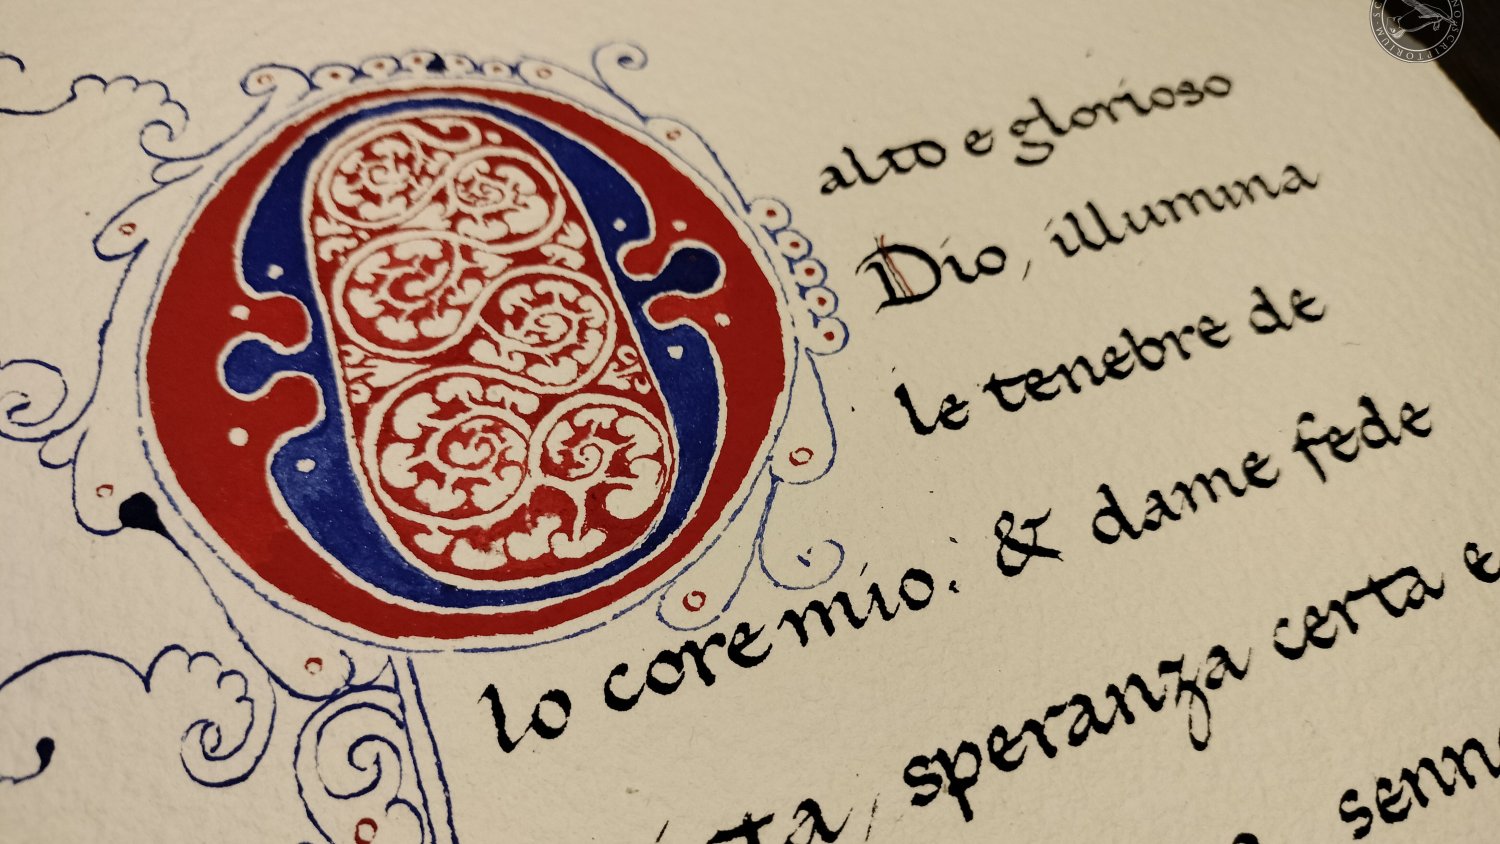 O alto e glorioso
Dio, illumina
le tenebre de
lo core mio. & dame fede
speranza certa e
senno
SCRIPTORIUM